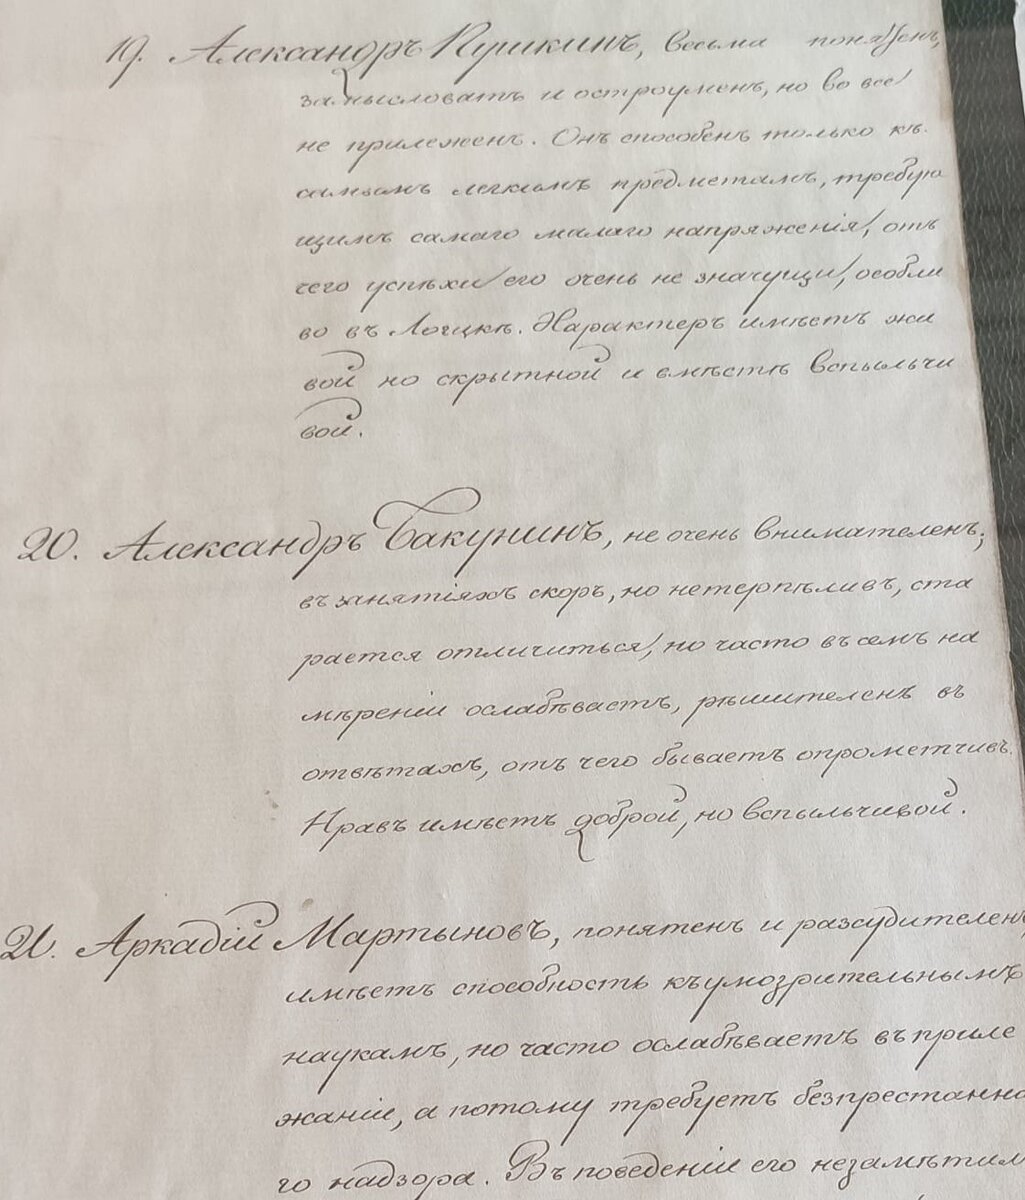 19. Александръ Пушкинъ, весьма понятенъ,
замысловатъ и остроуменъ, но во все
не прилеженъ. Онъ способенъ только къ
самымъ легкимъ предметамъ, требую
щимъ самаго малаго напряженія, отъ
чего успѣхи его очень не значущи, особли
во въ Логикѣ. Характеръ имѣетъ жи
вой но скрытной и вмѣстѣ вспыльчи
вой.
20. Александръ Бакунинъ, не очень внимателенъ;
въ занятіяхъ скоръ, но нетерпѣливъ, ста
рается отличиться, но часто въ семъ на
мѣреніи ослабѣваетъ, рѣшителенъ въ
отвѣтахъ, отъ чего бываетъ опрометчивъ.
Нравъ имѣетъ доброй, но вспыльчивой.
21. Аркадій Мартыновъ, понятенъ и разсудителенъ,
имѣетъ способность къ умозрительнымъ
наукамъ, но часто ослабѣваетъ въ приле
жаніи, а потому требуетъ безпрестанна
го надзора. Въ поведеніи его незамѣтим